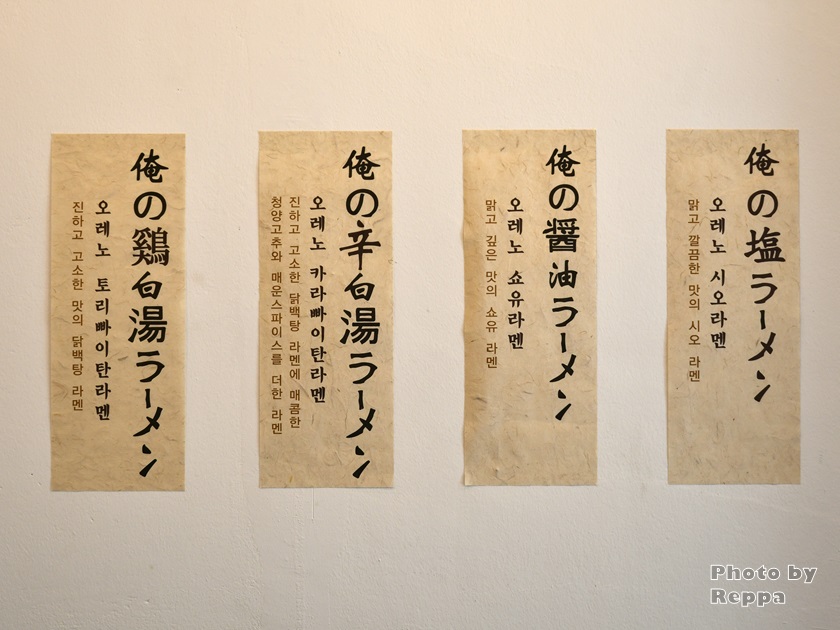 俺の鶏白湯ラーメン
오레노 토리빠이탄라멘
진하고 고소한 맛의 닭백탕 라멘
俺の辛白湯ラーメン
오레노 카라빠이탄라멘
진하고 고소한 닭백탕 라멘에 매콤한
청양고추와 매운스파이스를 더한 라멘
俺の醤油ラーメン
오레노 쇼유라멘
맑고 깊은 맛의 쇼유 라멘
俺の塩ラーメン
오레노 시오라멘
맑고 깔끔한 맛의 시오 라멘
Photo by
Reppa